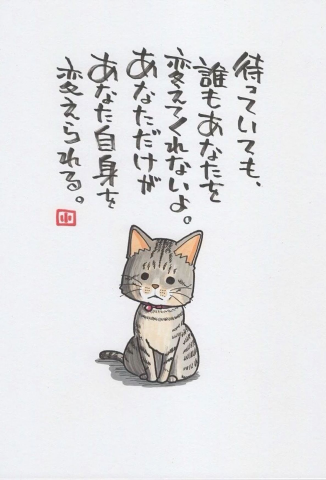 待っていても、
誰もあなたを
変えてくれないよ。
あなただけが
あなた自身を
変えられる。